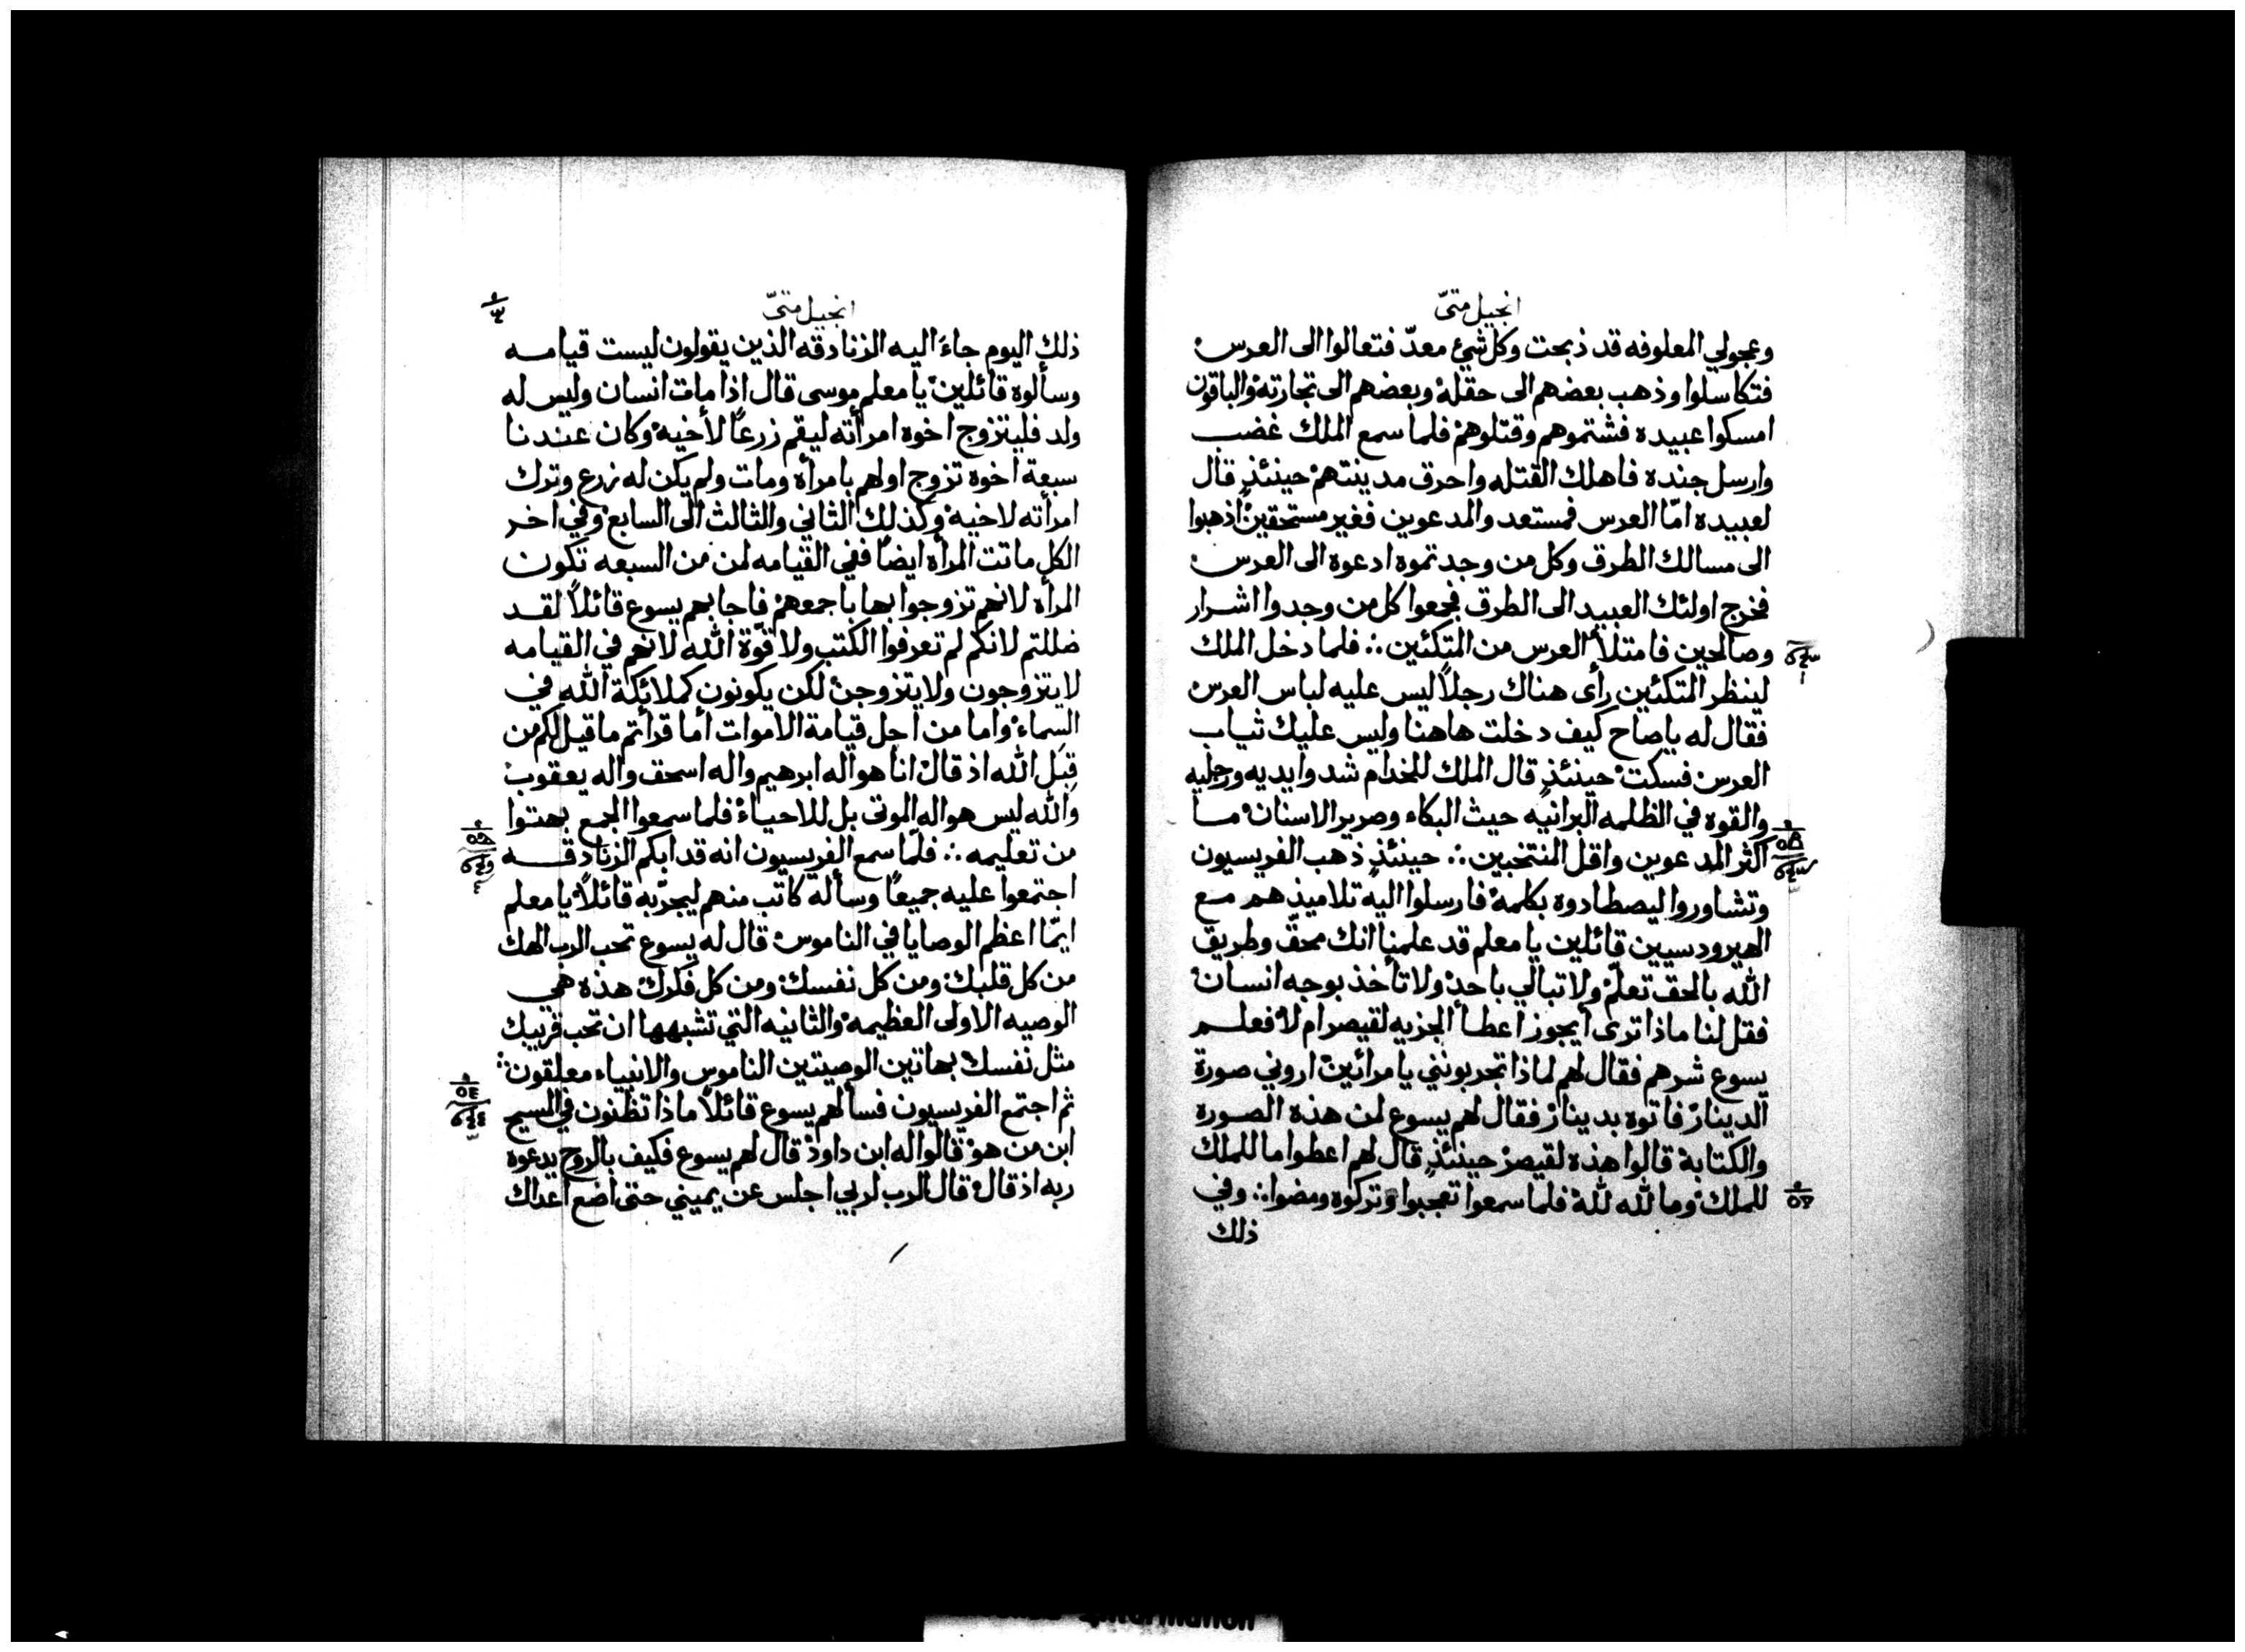 انجيل متىّ
وعجولي المعلوفه قد ذبحت وكل شيئ معدّ فتعالوا الى العرس
فتكاسلوا وذهب بعضهم الى حقله وبعضهم الى تجارته والباقون
امسكوا عبيده فشتموهم وقتلوهم فلما سمع الملك غضب
وارسل جنده فاهلك القتله واحرق مدينتهم حينئذٍ قال
لعبيده امّا العرس فمستعد والمدعوين فغير مستحقين اذهبوا
الى مسالك الطرق وكل من وجدتموه ادعوه الى العرس
فخرج اولئك العبيد الى الطرق فجمعوا كل من وجدوا اشرار
وصالحين فامتلأ العرس من المتكئين ؞ فلما دخل الملك
لينظر المتكئين رأى هناك رجلاً ليس عليه لباس العرس
فقال له ياصاح كيف دخلت هاهنا وليس عليك ثياب
العرس فسكت حينئذٍ قال الملك للخدام شدوا يديه ورجليه
والقوه في الظلمه البرانيه حيث البكاء وصرير الاسنان ما
اكثر المدعوين واقل المنتخبين ؞ حينئذٍ ذهب الفريسيون
وتشاوروا ليصطادوه بكلمة فارسلوا اليه تلاميذهم مع
الهيرودسيين قائلين يا معلم قد علمنا انك محقّ وطريق
الله بالحق تعلّم ولا تبالي باحد ولا تأخذ بوجه انسان
فقل لنا ماذا ترى ايجوز اعطأ الجزيه لقيصر ام لا فعلم
يسوع شرهم فقال لهم لماذا تجربونني يا مرائين اروني صورة
الدينار فاتوه بدينار فقال لهم يسوع لمن هذه الصوره
والكتابة قالوا هذه لقيصر حينئذٍ قال لهم اعطوا ما للملك
للملك وما لله لله فلما سمعوا تعجبوا وتركوه ومضوا ؞ وفي
ذلك
انجيل متىّ
ذلك اليوم جاءَ اليه الزنادقه الذين يقولون ليست قيامه
وسألوه قائلين يا معلم موسى قال اذا مات انسان وليس له
ولد فليتزوج اخوه امرأته ليقم زرعاً لأخيه وكان عندنا
سبعة اخوه تزوج اولهم بامرأة ومات ولم يكن له زرع وترك
امرأته لاخيه وكذلك الثاني والثالث الى السابع وفي اخر
الكل ماتت المرأه ايضاً ففي القيامه لمن من السبعه تكون
المرأه لانهم تزوجوا بها باجمعهم فاجابهم يسوع قائلاً لقد
ضللتم لانكم لم تعرفوا الكتب ولا قوّة الله لانهم في القيامه
لا يتزوجون ولا يتزوجن لكن يكونون كملائكة الله في
السماء واما من اجل قيامة الاموات أما قرأتم ما قيل لكم من
قِبَل الله اذ قال انا هو اله ابرهيم واله اسحق واله يعقوب
والله ليس هو اله الموتى بل للاحياء فلما سمعوا الجمع بهتوا
من تعليمه ؞ فلمّا سمع الفريسيون انه قد ابكم الزنادقه
اجتمعوا عليه جميعاً وسأله كاتب منهم ليجرّبه قائلاً يا معلم
ايمّا اعظم الوصايا في الناموس قال له يسوع تحب الرب الهك
من كل قلبك ومن كل نفسك ومن كل فكرك هذه هي
الوصيه الاولى العظيمه والثانيه التي تشبهها ان تحب قريبك
مثل نفسك بهاتين الوصيتين الناموس والانبياء معلقون ؞
ثم اجتمع الفريسيون فسألهم يسوع قائلاً ماذا تظنون في المسيح
ابن من هو قالوا له ابن داود قال لهم يسوع فكيف بالروح يدعوه
ربه اذ قال قال الرب لربي اجلس عن يميني حتى اضع اعداك